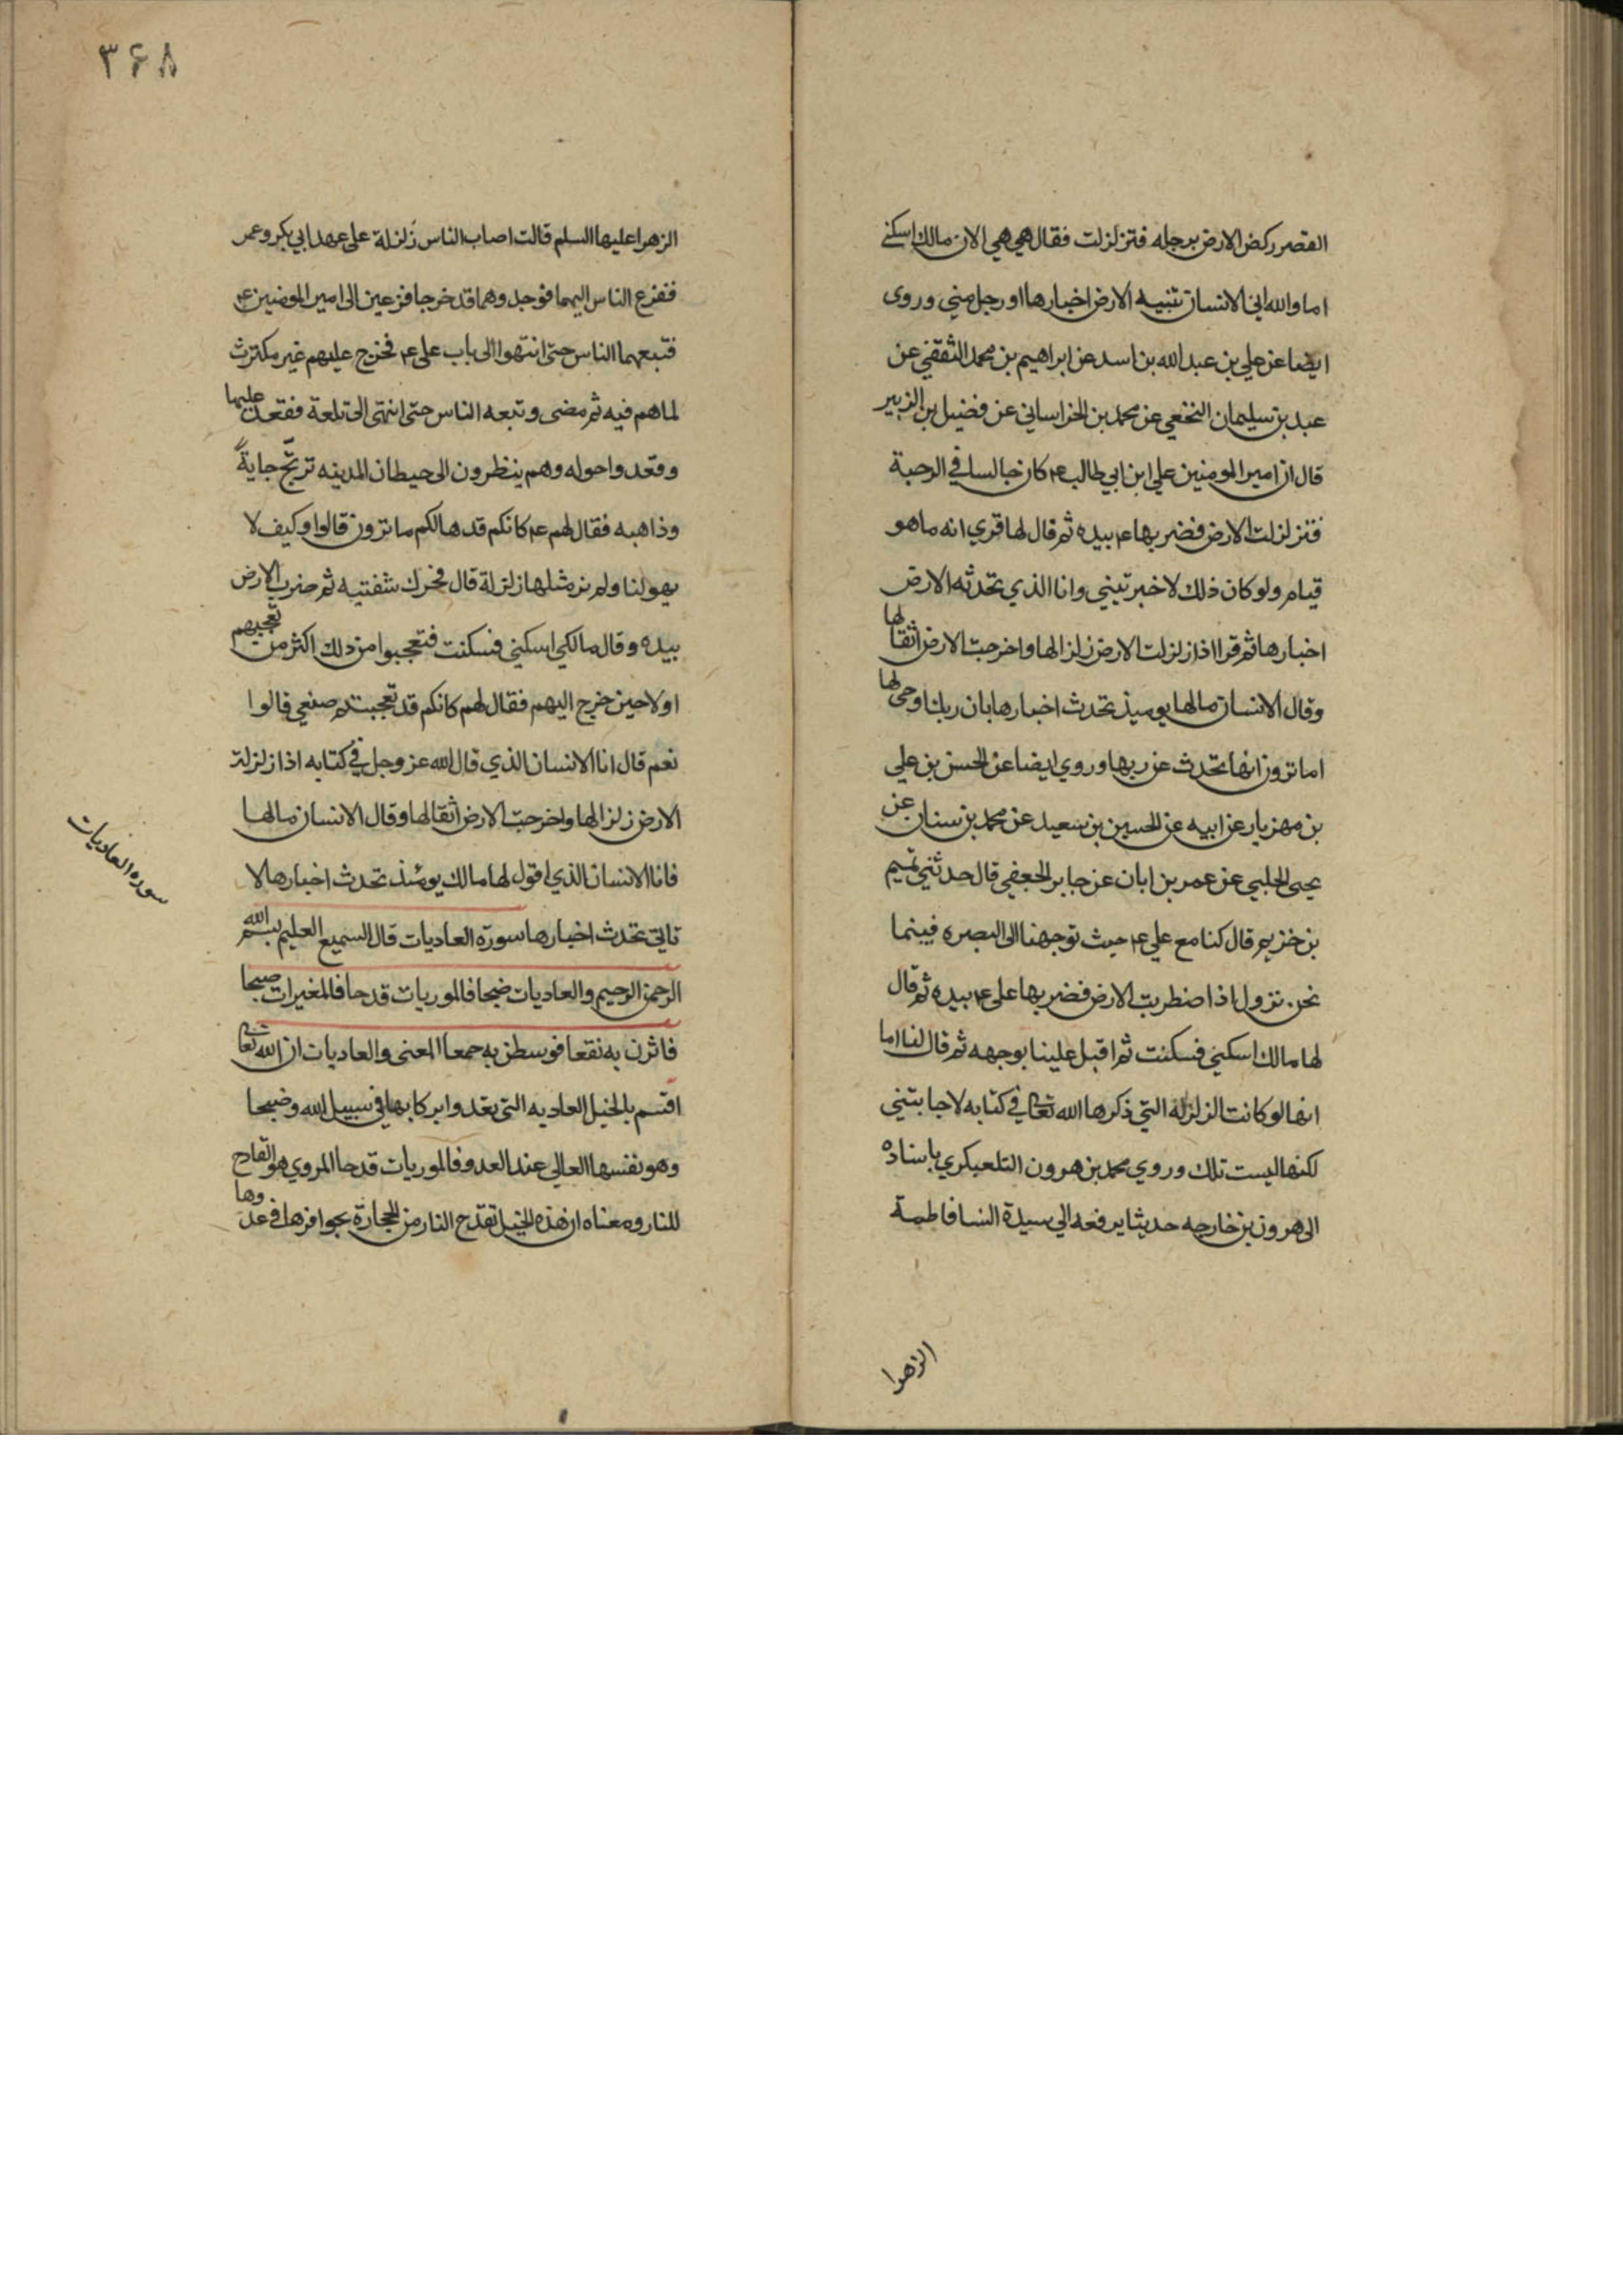 القصر ركض الارض برجله فتزلزلت فقال هي هي الان مالك اسكني
اما والله اني الانسان تنبيه الارض اخبارها او رجل مني وروى
ايضا عن علي بن عبد الله بن اسد عن ابراهيم بن محمد الثقفي عن
عبد بن سليمان النخعي عن محمد بن الخراساني عن فضيل بن الزبير
قال ان امير المومنين علي ابن ابي طالب ع كان جالسا في الرحبة
فتزلزلت الارض فضربها ع بيده ثم قال لها قري انه ما هو
قيام ولو كان ذلك لاخبرتيني وانا الذي تحدثه الارض
اخبارها ثم قرا اذا زلزلت الارض زلزالها واخرجت الارض اثقالها
وقال الانسان مالها يوميذ تحدث اخبارها بان ربك اوحى لها
اما ترون انها تحدث عن ربها وروي ايضا عن الحسن بن علي
بن مهزيار عن ابيه عن الحسين بن سعيد عن محمد بن سنان عن
يحيى الحلبي عن عمر بن ابان عن جابر الجعفي قال حدثني تميم
بن خزيم قال كنا مع علي ع حيث توجهنا الى البصره فبينما
نحن نزول اذا ضطربت الارض فضربها علي ع بيده ثم قال
لها مالك اسكني فسكنت ثم اقبل علينا بوجهه ثم قال لنا اما
انها لو كانت الزلزلة التي ذكرها الله تعالى في كتابه لاجابتني
لكنها ليست تلك وروي محمد بن هرون التلعبكري باسناده
الى هرون بن خارجه حديثا يرفعه الي سيدة النسا فاطمة
الزهرا
٣۶٨
الزهرا عليها السلم قالت اصاب الناس زلزلة على عهد ابي بكر وعمر
ففزع الناس اليهما فوجد وهما قد خرجا فزعين الى امير المومنين ع
فتبعهما الناس حتى انتهوا الى باب علي ع فخرج عليهم غير مكترث
لما هم فيه ثم مضى وتبعه الناس حتى انتهى الى تلعة فقعد عليها
وقعدوا حوله وهم ينظرون الى حيطان المدينه ترتج جاية
وذاهبه فقال لهم ع كانكم قد هالكم ما ترون قالوا وكيف لا
يهولنا ولم نر مثلها زلزلة قال فحرك شفتيه ثم ضرب الارض
بيده وقال مالكي اسكني فسكنت فتعجبوا من ذلك اكثر من تعجبهم
اولا حين خرج اليهم فقال لهم كانكم قد تعجبتم صنعي قالوا
نعم قال انا الانسان الذي قال الله عز وجل في كتابه اذا زلزلت
الارض زلزالها واخرجت الارض اثقالها وقال الانسان مالها
فانا الانسان الذي اقول لها مالك يومئذ تحدث اخبارها لا
تاتي تحدث اخبارها سورة العاديات قال السميع العليم بسم الله
الرحمن الرحيم والعاديات ضبحا فالموريات قدحا فالمغيرات صبحا
فاثرن به نقعا فوسطن به جمعا المعنى والعاديات ان الله تعالى
اقسم بالخيل العاديه التي تعدوا بركابها في سبيل الله وضبحا
وهو نفسها العالي عند العدو فالموريات قدحا المروي هو القادح
للنار ومعناه ان هذه الخيل تقدح النار من الحجارة بحوافرها في عدوها
سوره العاديات